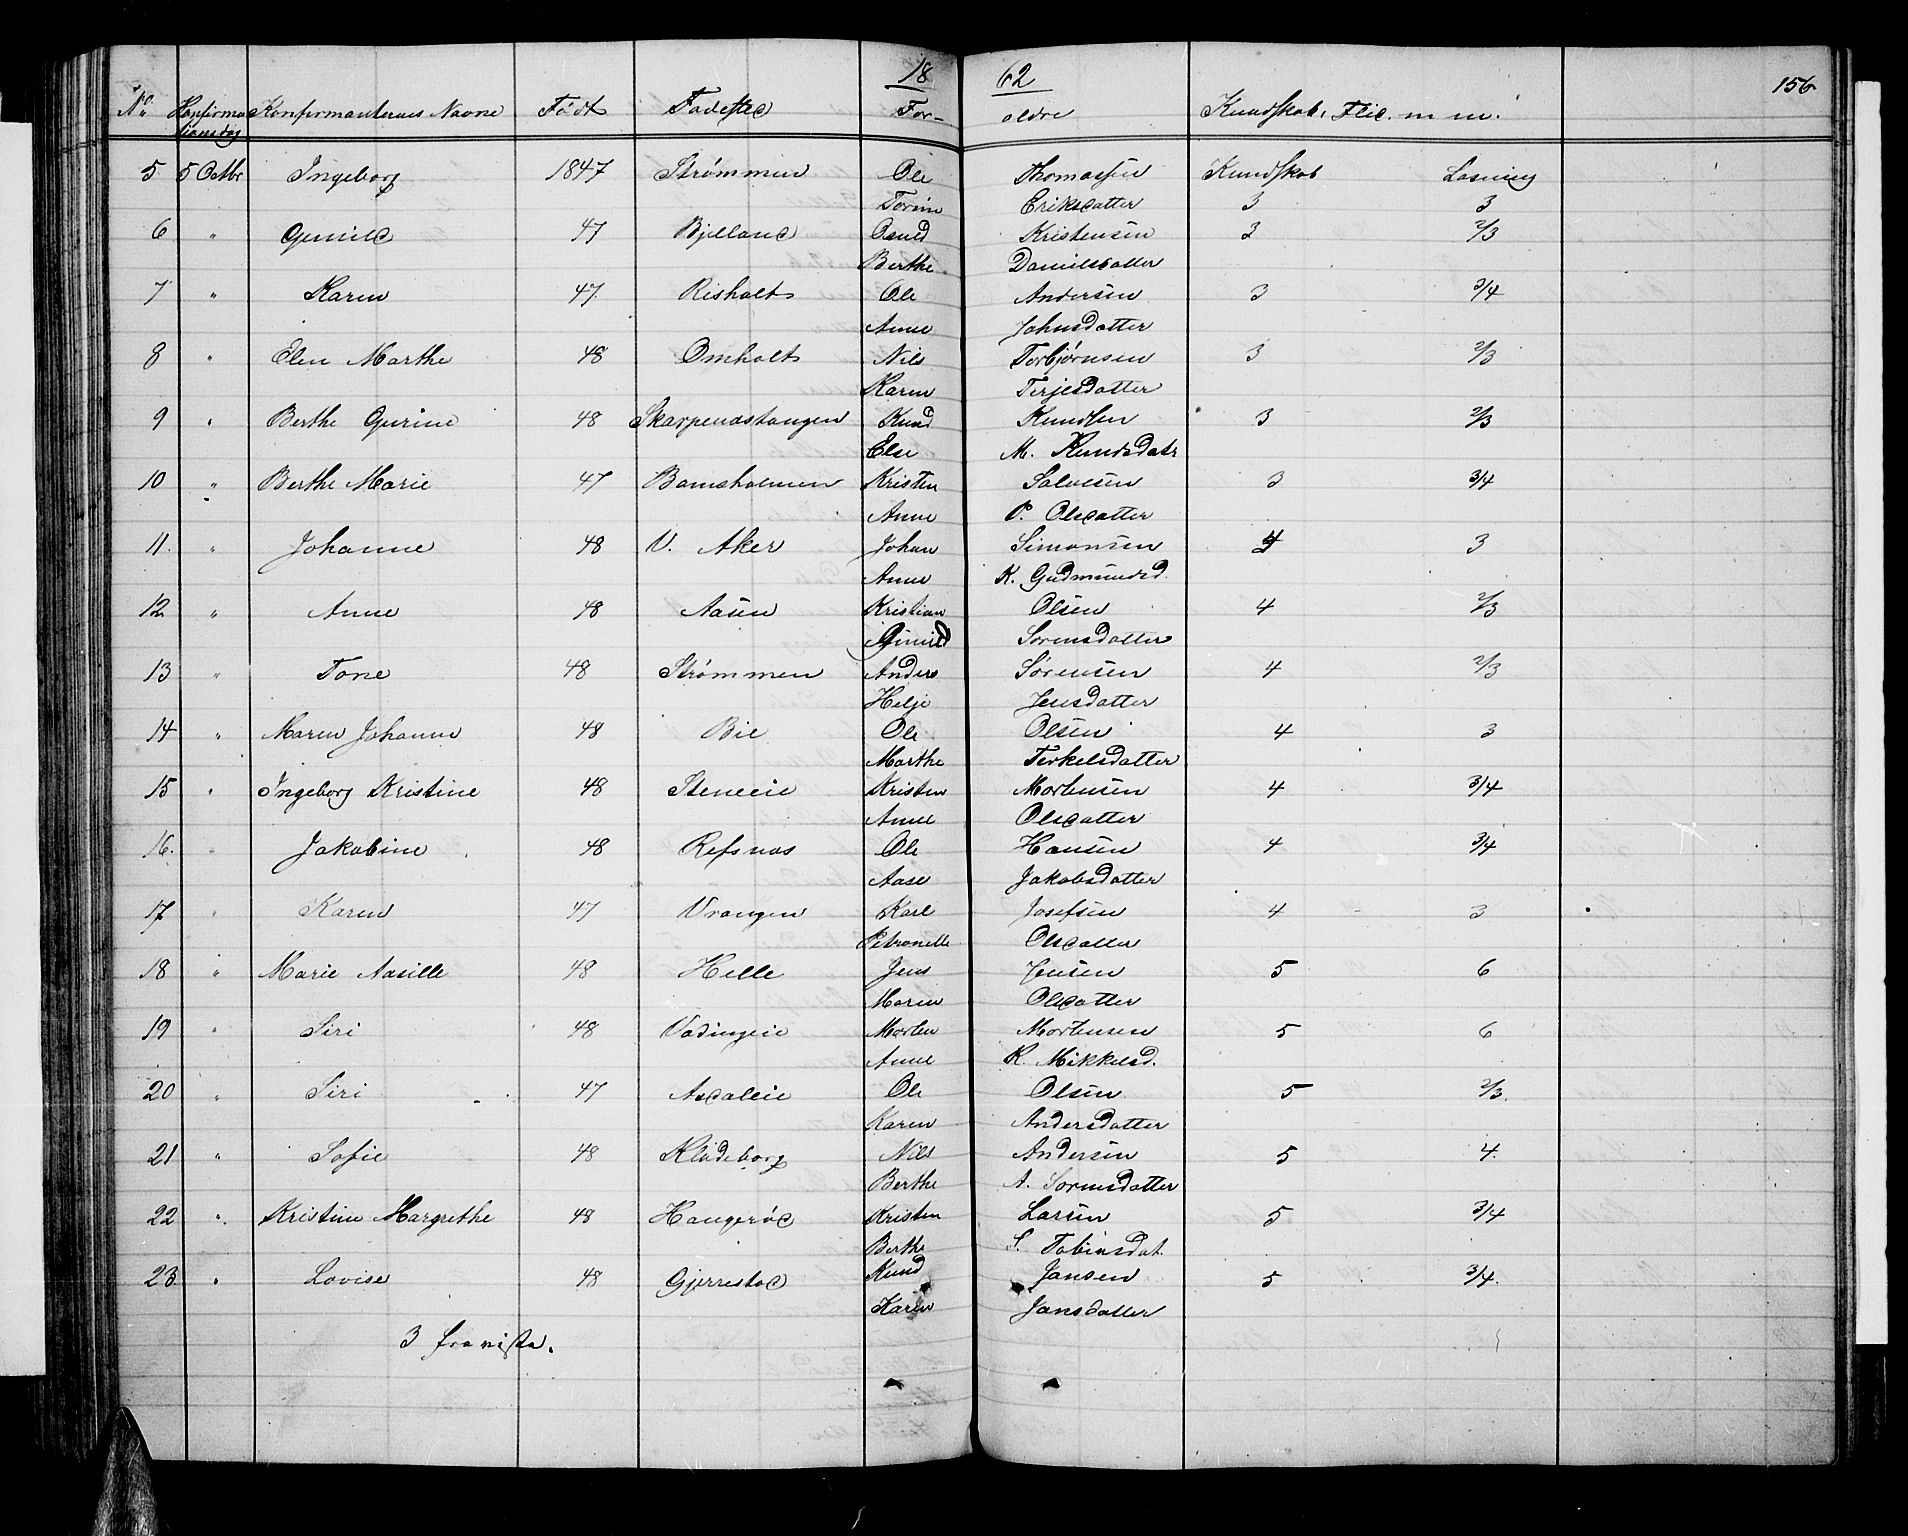 18 62 156
No. Konfirma Konfirmanternes Navne Født Fødested For- ældre Kundskab, Flid. m m.
tionsdag
5 5 Octbr Ingeborg 1847 Strømmen Ole Thomassen Kundskab Læsning
Torine Eriksdatter 3 3
6 " Gunild 47 Bjelland Osmd Kristensen 3 2/3
Berthe Danielsdatter
7 " Karen 47. Risholt Ole Andersen 3 3/4
Anne Johnsdatter
8 " Elen Marthe 48 Omholt Nils Torbjørnsen 3 2/3
Karen Terjesdatter
9 " Berthe Gurine 48 Skarpenodstangen Knud Knudsen 3 2/3
Else M. Knudsdatr
10 " Berthe Marie 47 Bomsholmen Kristen Salvesen 3 3/4
Anne P. Olsdatter
11. " Johanne 48 V. Aker Johan Simonsen 4 3
Anne K. Gudmundsd.
12 " Anne 48 Aasen Kristian Olsen 4 2/3
Gunild Sørensdatter
13 " Tone 48 Strømmen Anders Sørensen 4 2/3
Helje Jensdatter
14 " Maren Johanne 48 Bie Ole Olsen 4 3
Marthe Terkelsdatter
15 " Ingeborg Kristine 48 Steneeie Kristen Mortensen 4 3/4
Anne Olsdatter
16. " Jakobine 48 Refsnæs Ole Hansen 4 3/4
Aase Jakobsdatter
17 " Karen 47 Vrangen Karl Josefsen 4 3
Petronelle Olsdatter
18 " Marie Aasille 48 Helle Jens Jensen 5 6
Maren Olsdatter
19 " Siri 48 Vadingeie Morten Mortensen 5 6
Anne K. Mikkelsd.
20 " Siri 47 Asdaleie Ole Olsen 5 2/3.
Karen Andersdatter
21 " Sofie 48 Klødeborg Nils Andersen 5 4.
Berthe A. Sørensdatter
22 " Kristine Margrethe 48 Haugerød Kristen Larsen 5 3/4
Berthe S. Tobinsdat.
23 " Lovise 48 Gjerrestad Knud Jansen 5 3/4.
Karen Jansdatter
3 fra vista.